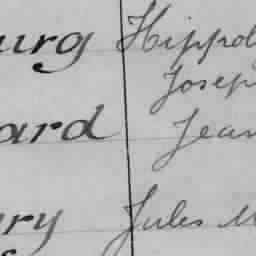 urg Hippol
Josep
ard Jean
ry Jules M